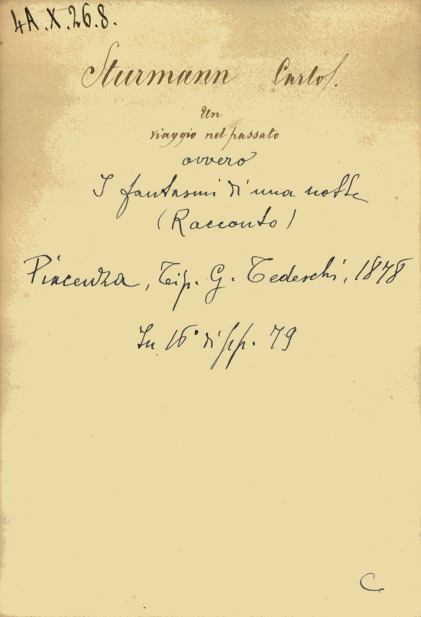 4A.X.26.8.
Sturmann Carlo S.
Un
viaggio nel passato
ovvero
I fantasmi di una notte
(Racconto)
Piacenza, Tip. G. Tedeschi, 1878
In 16° di pp. 79
C